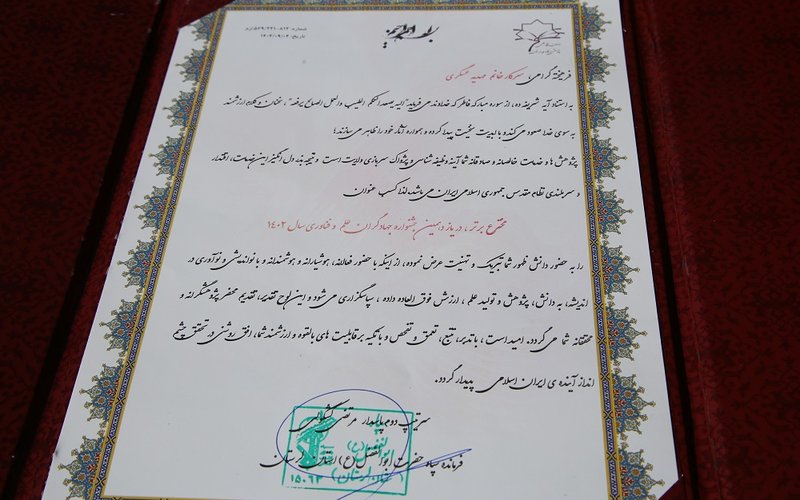 شماره: ۸۱۲-۵۲۹/۲۳۱/ارم
تاریخ: ۱۴۰۲/۰۹/۰۴
فرهیخته گرامی، سرکار خانم مهدیه عسگری
به استناد آیه شریفه ده، از سوره مبارکه فاطر که خداوند می فرماید "الیه یصعد الکلم الطیب والعمل الصالح یرفعه"، سخنان و کلام ارزشمند
به سوی خدا صعود می کند و با ابدیت سنخیت پیدا کرده و همواره آثار خود را ظاهر می سازند؛
پژوهش ها و خدمات خالصانه و صادقانه شما آینه وظیفه شناسی و پژواک سربازی ولایت است و نتیجه بذر دل انگیز این خدمات، اقتدار
و سربلندی نظام مقدس جمهوری اسلامی ایران می باشد. لذا کسب عنوان
مخترع برتر، در یازدهمین جشنواره جهادگران علم و فناوری سال ۱۴۰۲
را به حضور دانش ظهور شما تبریک و تهنیت عرض نموده، از اینکه با حضور فعالانه، هوشیارانه و هوشمندانه و با نواندیشی و نوآوری در
اندیشه، به دانش، پژوهش و تولید علم، ارزش فوق العاده داده، سپاسگزاری می شود و این لوح تقدیر، تقدیم محضر پژوهشگرانه و
محققانه شما می گردد. امید است، با تدبر، تتبع، تعمق و تفحص و با تکیه بر قابلیت های بالقوه و ارزشمند شما، افق روشنی در تحقق چشم
انداز آینده ی ایران اسلامی پدیدار گردد.
سرتیپ دوم پاسدار مرتضی کشکولی
فرمانده سپاه حضرت ابوالفضل (ع) استان لرستان
۱۵۰۶۳